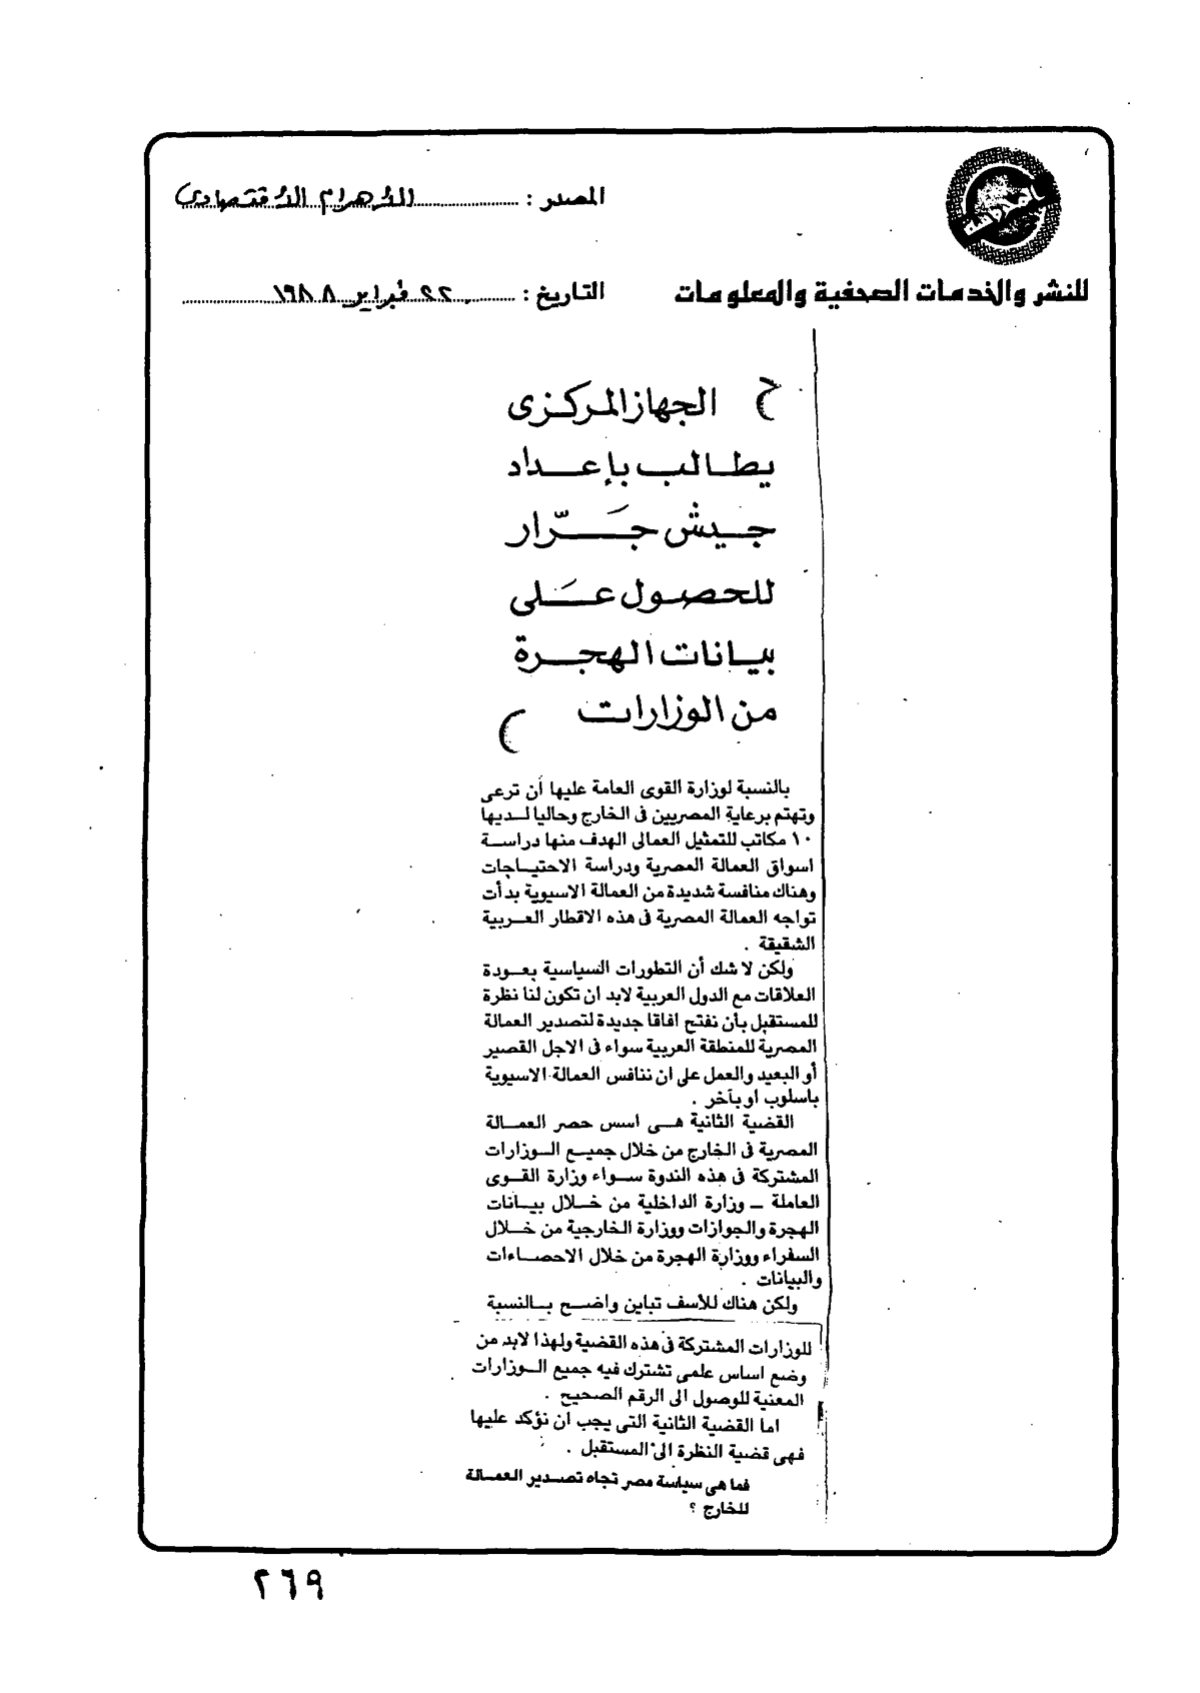 المصدر : الأهرام الاقتصادى
للنشر والخدمات الصحفية والمعلومات
التاريخ : ٢٢ فبراير ١٩٨٨
الجهاز المركزى
يطالب بإعداد
جيش جَرّار
للحصول عَلى
بيانات الهجرة
من الوزارات
بالنسبة لوزارة القوى العامة عليها أن ترعى
وتهتم برعاية المصريين فى الخارج وحاليا لديها
١٠ مكاتب للتمثيل العمالى الهدف منها دراسة
اسواق العمالة المصرية ودراسة الاحتياجات
وهناك منافسة شديدة من العمالة الاسيوية بدأت
تواجه العمالة المصرية فى هذه الاقطار العربية
الشقيقة .
ولكن لا شك أن التطورات السياسية بعودة
العلاقات مع الدول العربية لابد ان تكون لنا نظرة
للمستقبل بأن نفتح افاقا جديدة لتصدير العمالة
المصرية للمنطقة العربية سواء فى الاجل القصير
أو البعيد والعمل على ان ننافس العمالة الاسيوية
باسلوب او بآخر .
القضية الثانية هى اسس حصر العمالة
المصرية فى الخارج من خلال جميع الوزارات
المشتركة فى هذه الندوة سواء وزارة القوى
العاملة ـ وزارة الداخلية من خلال بيانات
الهجرة والجوازات ووزارة الخارجية من خلال
السفراء ووزارة الهجرة من خلال الاحصاءات
والبيانات .
ولكن هناك للأسف تباين واضح بالنسبة
للوزارات المشتركة فى هذه القضية ولهذا لابد من
وضع اساس علمى تشترك فيه جميع الوزارات
المعنية للوصول الى الرقم الصحيح .
اما القضية الثانية التى يجب ان نؤكد عليها
فهى قضية النظرة الى المستقبل .
فما هى سياسة مصر تجاه تصدير العمالة
للخارج ؟
٢٦٩